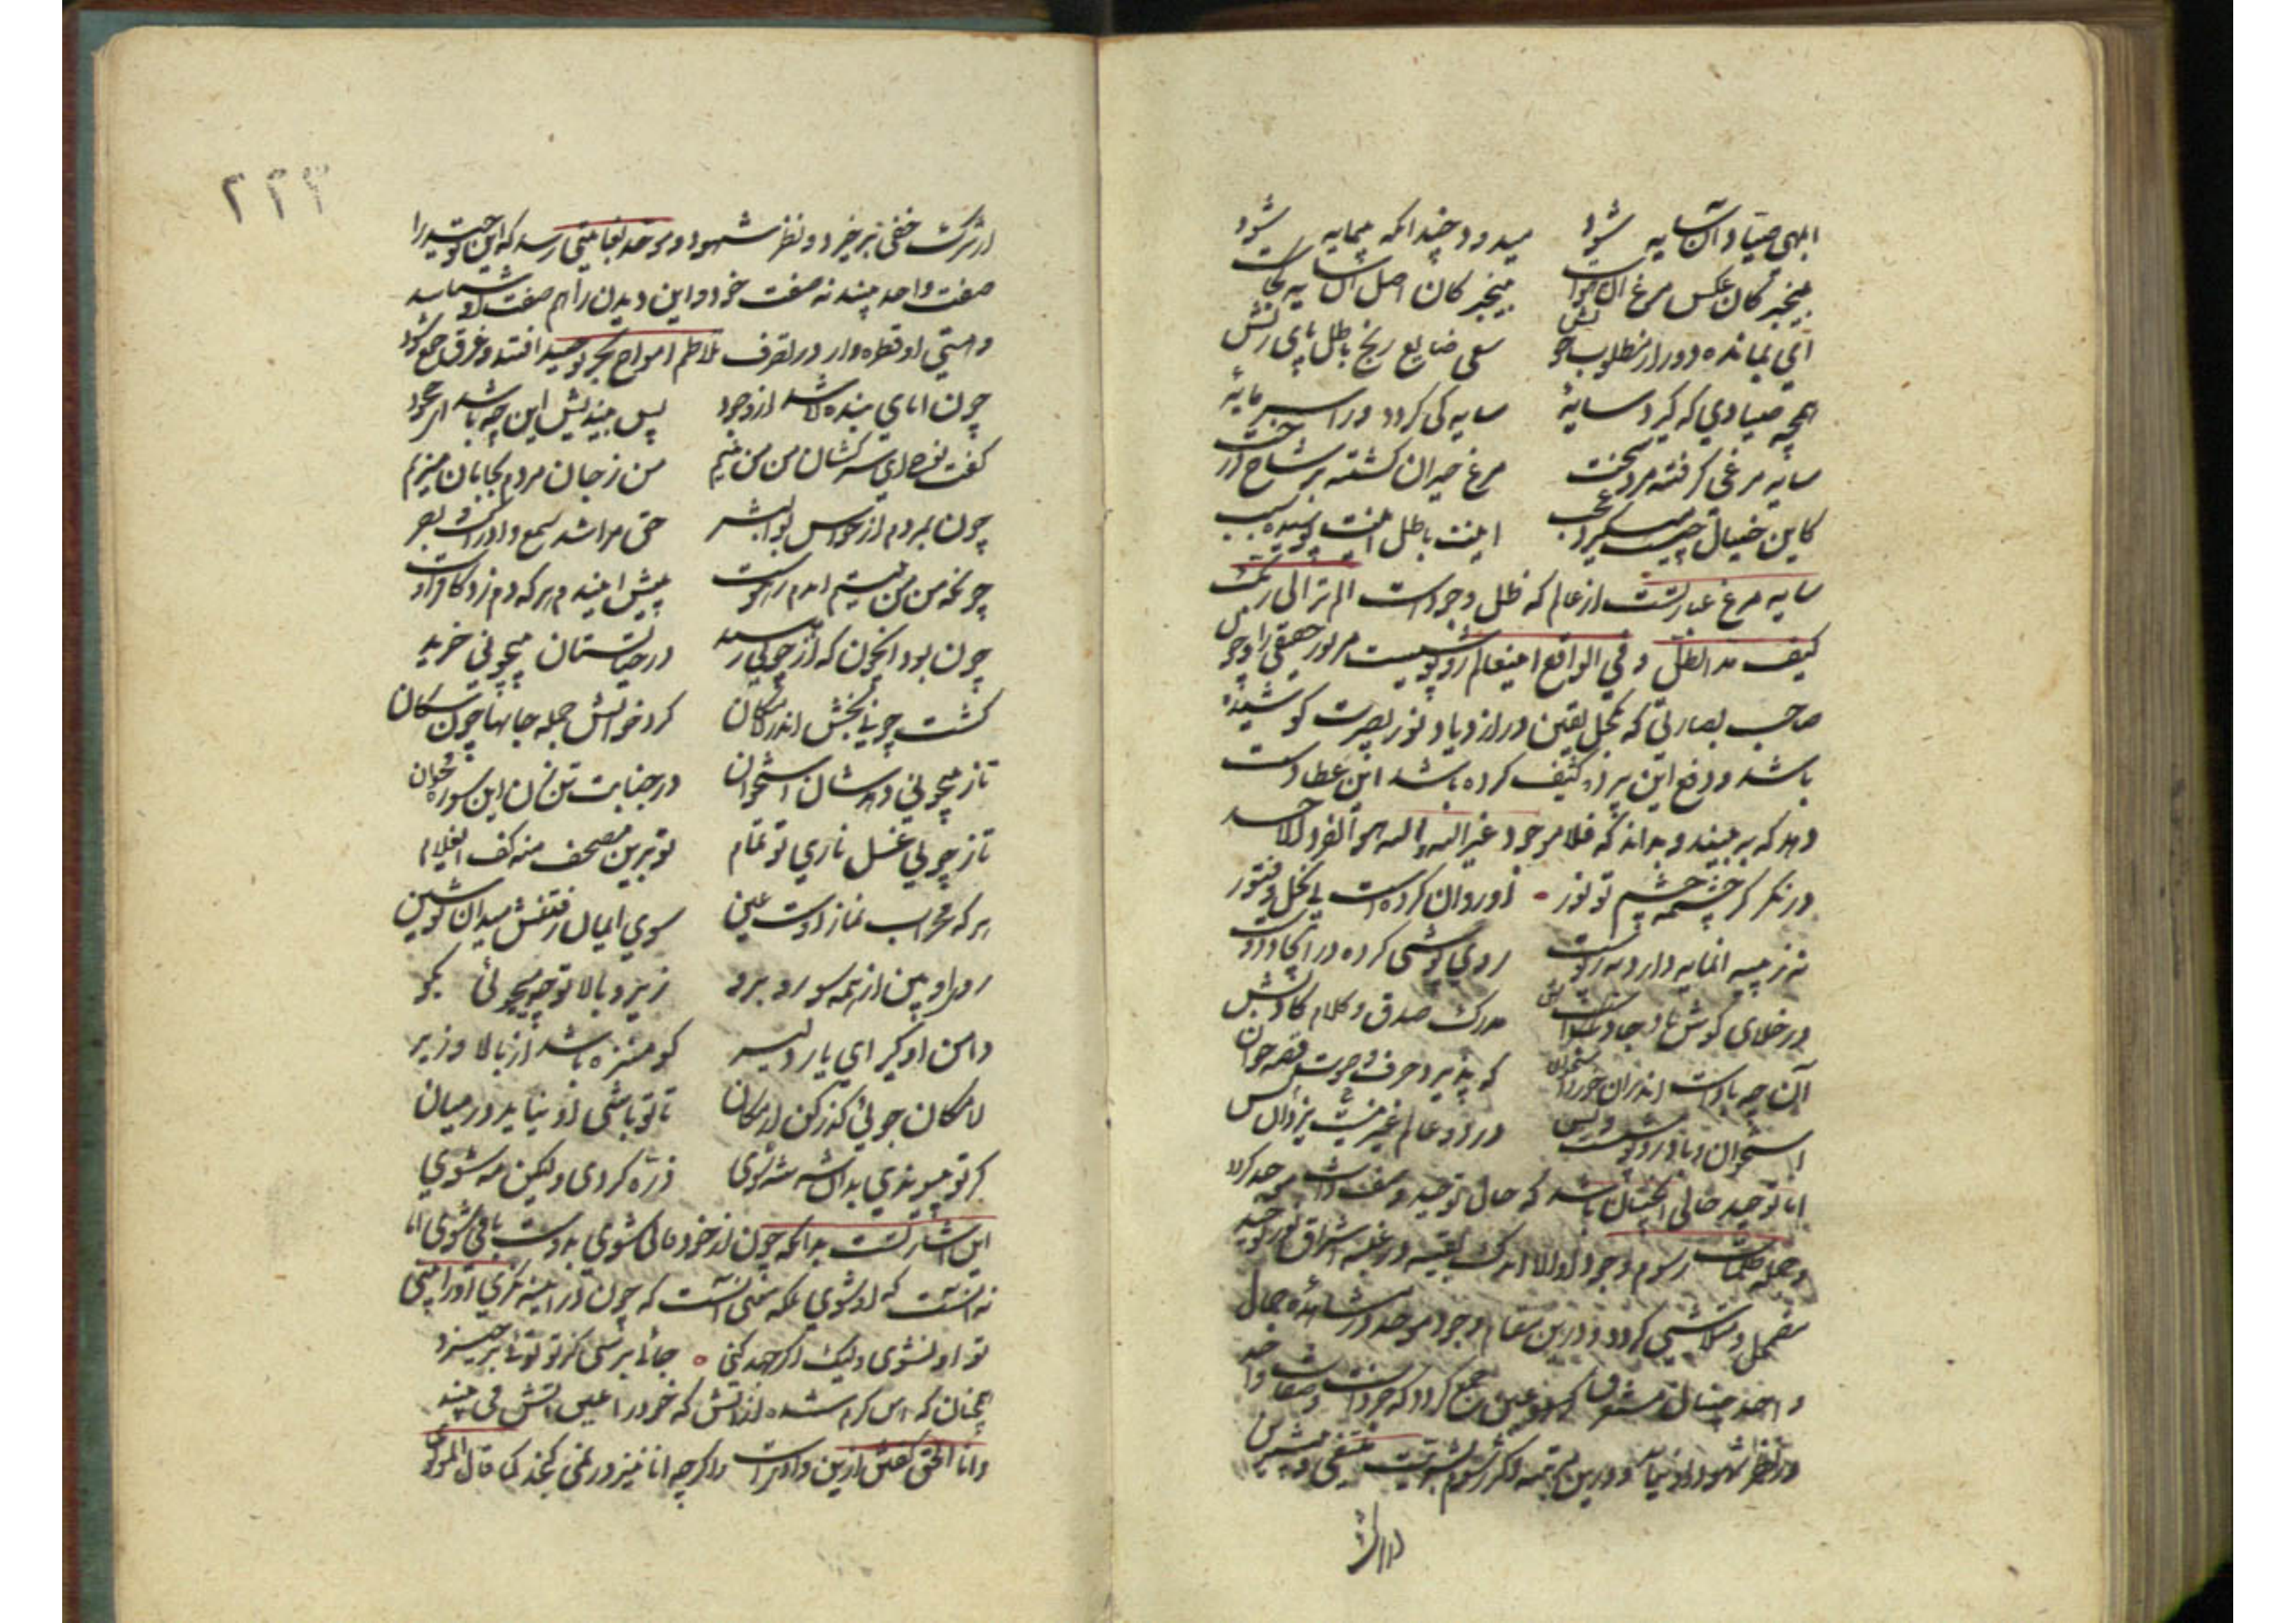 ابلهی صیاد آن سایه شود میدود چندانکه بیمایه شود
بیخبر کان عکس مرغ آن هواست بیخبر کان اصل آن سایه کجاست
ای بمانده دور از مطلوب خویش سعی ضایع رنج باطل پای ریش
همچو صیادی که گیرد سایهٔ سایه کی گردد ورا سرمایهٔ
سایه مرغی گرفته مرد سخت مرغ حیران گشته بر شاخ درخت
کاین خیال عجب اینت باطل اینت پوسیده سبب
سایه مرغ عبارتست از عالم که ظل وجود است الم تر الی ربک
کیف مد الظل و فی الواقع اینعالم روپوشیست مر نور حقیقی را و هر
صاحب بصارتی که بکحل یقین در ازدیاد نور بصیرت کوشیده
باشد و رفع این پرده کثیف کرده باشد این عطا دست
دهد که به بیند و بداند که فلا موجود غیر الله و الله هو الفرد الاحد
درنگر کز چشمه چشم تو نور زو روان کرده است بی بخل و فتور
نی ز پیه آن مایه دارد نه ز پوست روی پوشی کرده در ایجاد دوست
در خلای گوش باد جاذبش مدرک صدق و کلام کاذبش
آن چه باد است اندران خرد استخوان که پذیرد حرف و صوت قصه خوان
استخوان و باد روپوشست و بس در دو عالم غیر یزدان نیست کس
اما توحید حالی آنچنان باشد که حال توحید وصف ذات موحد گردد
و جمله ظلمات رسوم وجود او الا اندک بقیه در غلبه اشراق نور توحید
مضمحل و متلاشی گردد و درین مقام وجود موحد در مشاهده جمال
واحد چنان مستغرق عین جمع گردد که جز ذات و صفات واحد
در نظر شهود او نیاید و درین مرتبه اکثر رسوم بشریت منتفی
از شرک
۲۲۳
از شرک خفی برخیزد و نظر شهود موحد بغایتی رسد که این توحید را
صفت واحد بیند نه صفت خود و این دیدن را هم صفت او شناسد
و هستی او قطره وار در تصرف تلاطم امواج بحر توحید افتد و غرق جمع شود
چون انای بنده لا شد از وجود پس چه باشد بیندیش این
گفت نوح ای سرکشان من من نیم من ز جان مردم بجانان میزیم
چون بمردم از حواس بوالبشر حق مرا شد سمع و ادراک و بصر
چونکه من من نیستم این دم ز هوست پیش این دم هر که دم زد کافر اوست
چون بود آنچون که از چونی رسید در حیاتستان بیچونی رسید
گشت چونی بخش اندر لامکان گرد خوانش جمله جانها چون سگان
تا ز بیچونی دهدشان استخوان در جنابت تن زن این سوره مخوان
تا ز چونی غسل ناری تو تمام تو برین مصحف منه کف ای غلام
هر که محراب نمازش گشت عین سوی ایمان رفتنش میدان تو شین
زیر و بالا تو چه میجوئی بگو
دامن او گیر ای یار دلیر کو منزه باشد از بالا و زیر
تا تو باشی او نیاید در میان
گر تو پیوندی بدان شه شه شوی ذره گردی ولیکن مه شوی
این اشارتست بدانکه چون از خود فانی شوی بدوست باقی شوی اما
نه آنست که او شوی بلکه معنی آنست که چون در آینه نگری او را بینی
تو او نشوی ولیک اگر جهد کنی جائی برسی کز تو توئی برخیزد
چنان که آهن گرم شده از آتش که خود را عین آتش می بیند
و انا الحق گفتن ازین و اگرچه انا نیز در نمی گنجد کما قال المولوی